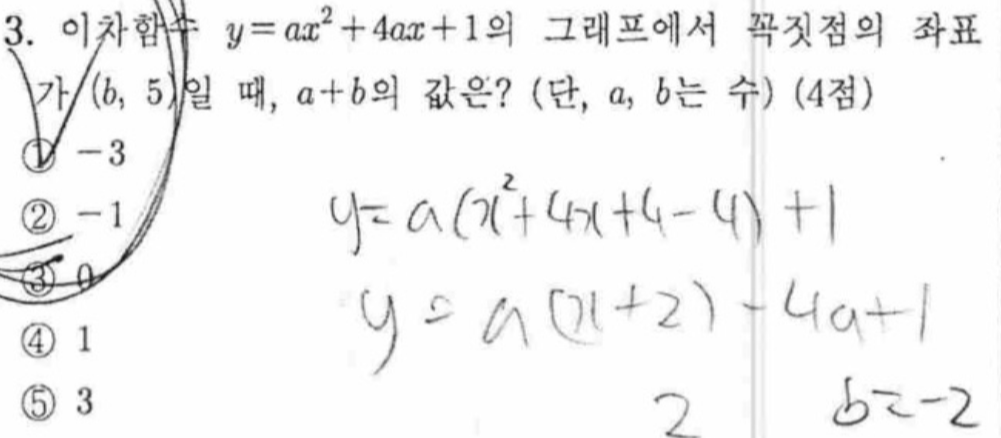 3. 이차함수 y=ax²+4ax+1의 그래프에서 꼭짓점의 좌표
가 (b, 5)일 때, a+b의 값은? (단, a, b는 수) (4점)
① -3
② -1
③ 0
④ 1
⑤ 3
y=a(x²+4x+4-4)+1
y=a(x+2)-4a+1
2 b=-2